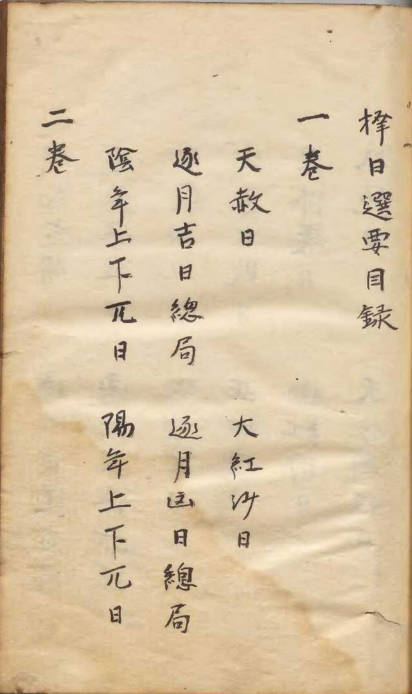 擇日選要目録
一卷
天赦日 大紅沙日
逐月吉日總局 逐月凶日總局
陰年上下兀日 陽年上下兀日
二卷